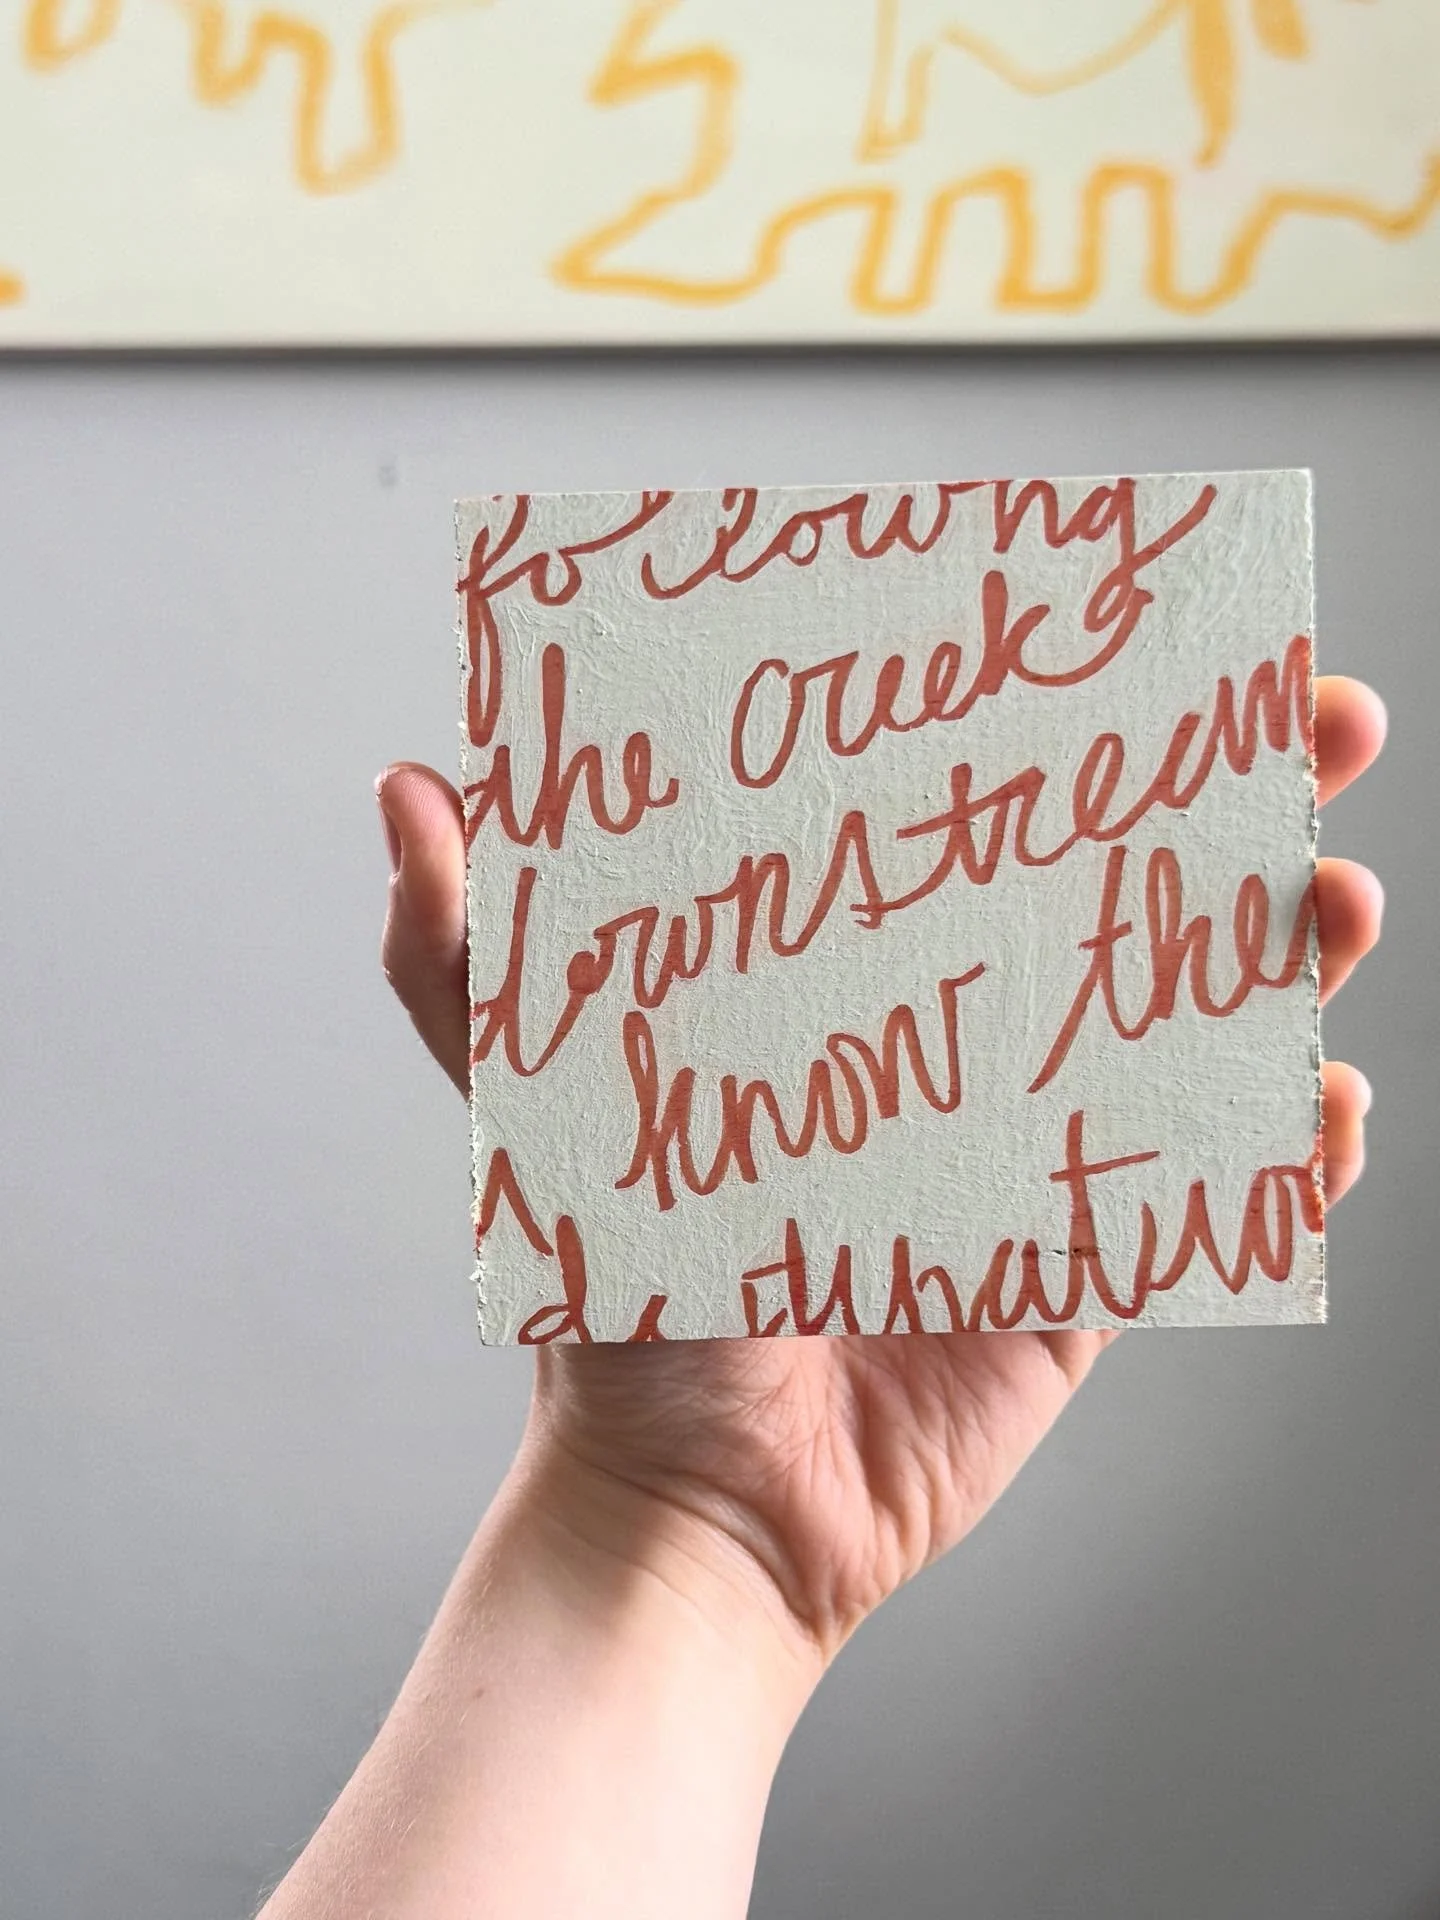 following
the creek
downstream
know the
destination